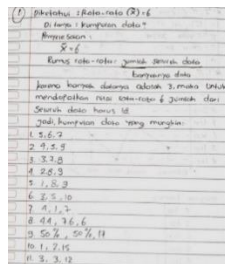 ① Diketahui : Rata-rata (x̄) = 6
Ditanya : kumpulan data?
Penyelesaian :
x̄ = 6
Rumus rata-rata : jumlah seluruh data
banyaknya data
karena banyak datanya adalah 3, maka untuk
mendapatkan nilai rata-rata 6 jumlah dari
seluruh data harus 18
Jadi, kumpulan data yang mungkin:
1. 5,6,7
2. 4,5,9
3.
4. 2,8,
5. 1,8,9
6.
7.
8.
9. 50%, 50%, 17
10. 1, 2, 15
11. 3, 3, 12